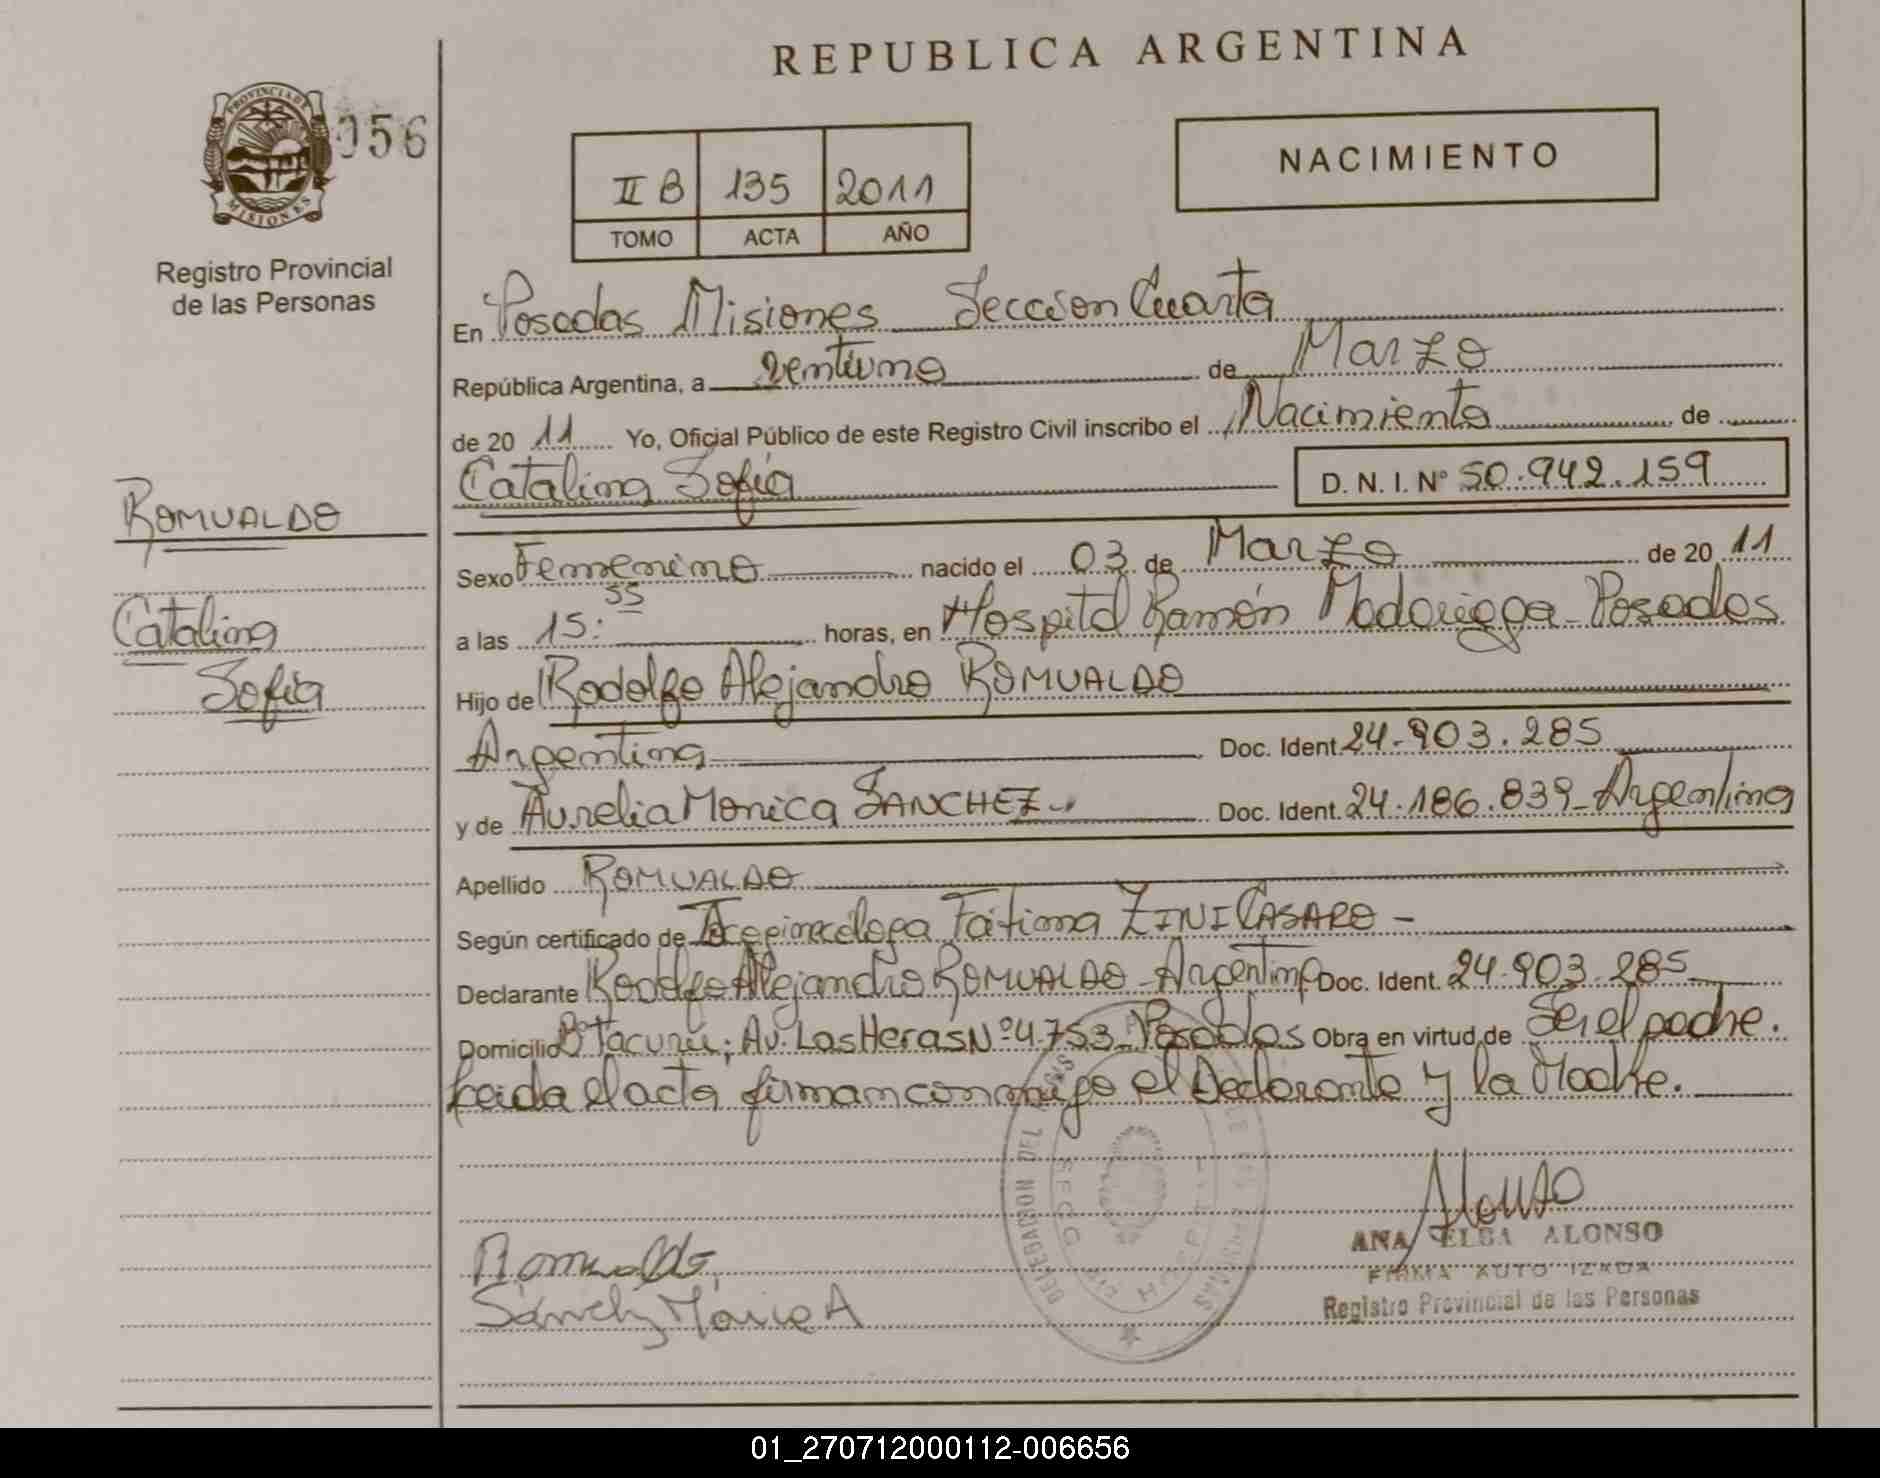 REPUBLICA ARGENTINA
PROVINCIA DE
MISIONES
056
Registro Provincial
de las Personas
II B 135 2011
TOMO ACTA AÑO
NACIMIENTO
En Posadas Misiones Seccion Cuarta
República Argentina, a ventiuno de Marzo
de 20 11 Yo, Oficial Público de este Registro Civil inscribo el Nacimiento de
Catalina Sofia D. N. I. Nº 50.942.159
ROMUALDO
Catalina
Sofia
Sexo Femenino nacido el 03 de Marzo de 20 11
a las 15:55 horas, en Hospital Ramón Madariaga - Posadas
Hijo de Rodolfo Alejandro ROMUALDO
Argentina Doc. Ident. 24.903.285
y de Aurelia Monica SANCHEZ Doc. Ident. 24.186.839 - Argentina
Apellido ROMUALDO
Según certificado de Fátima ZINI CASARO -
Declarante Rodolfo Alejandro ROMUALDO - Argentina Doc. Ident. 24.903.285
Domicilio Bº Tacurú; Av. Las Heras Nº 4.753 - Posadas Obra en virtud de Ser el padre.
Leida el acta firman conmigo el Declarante y la Madre.
DELEGACION DEL
Alonso
ANA ELBA ALONSO
FIRMA AUTORIZADA
Registro Provincial de las Personas
Romualdo
Sánchez Mónica A
01_270712000112-006656